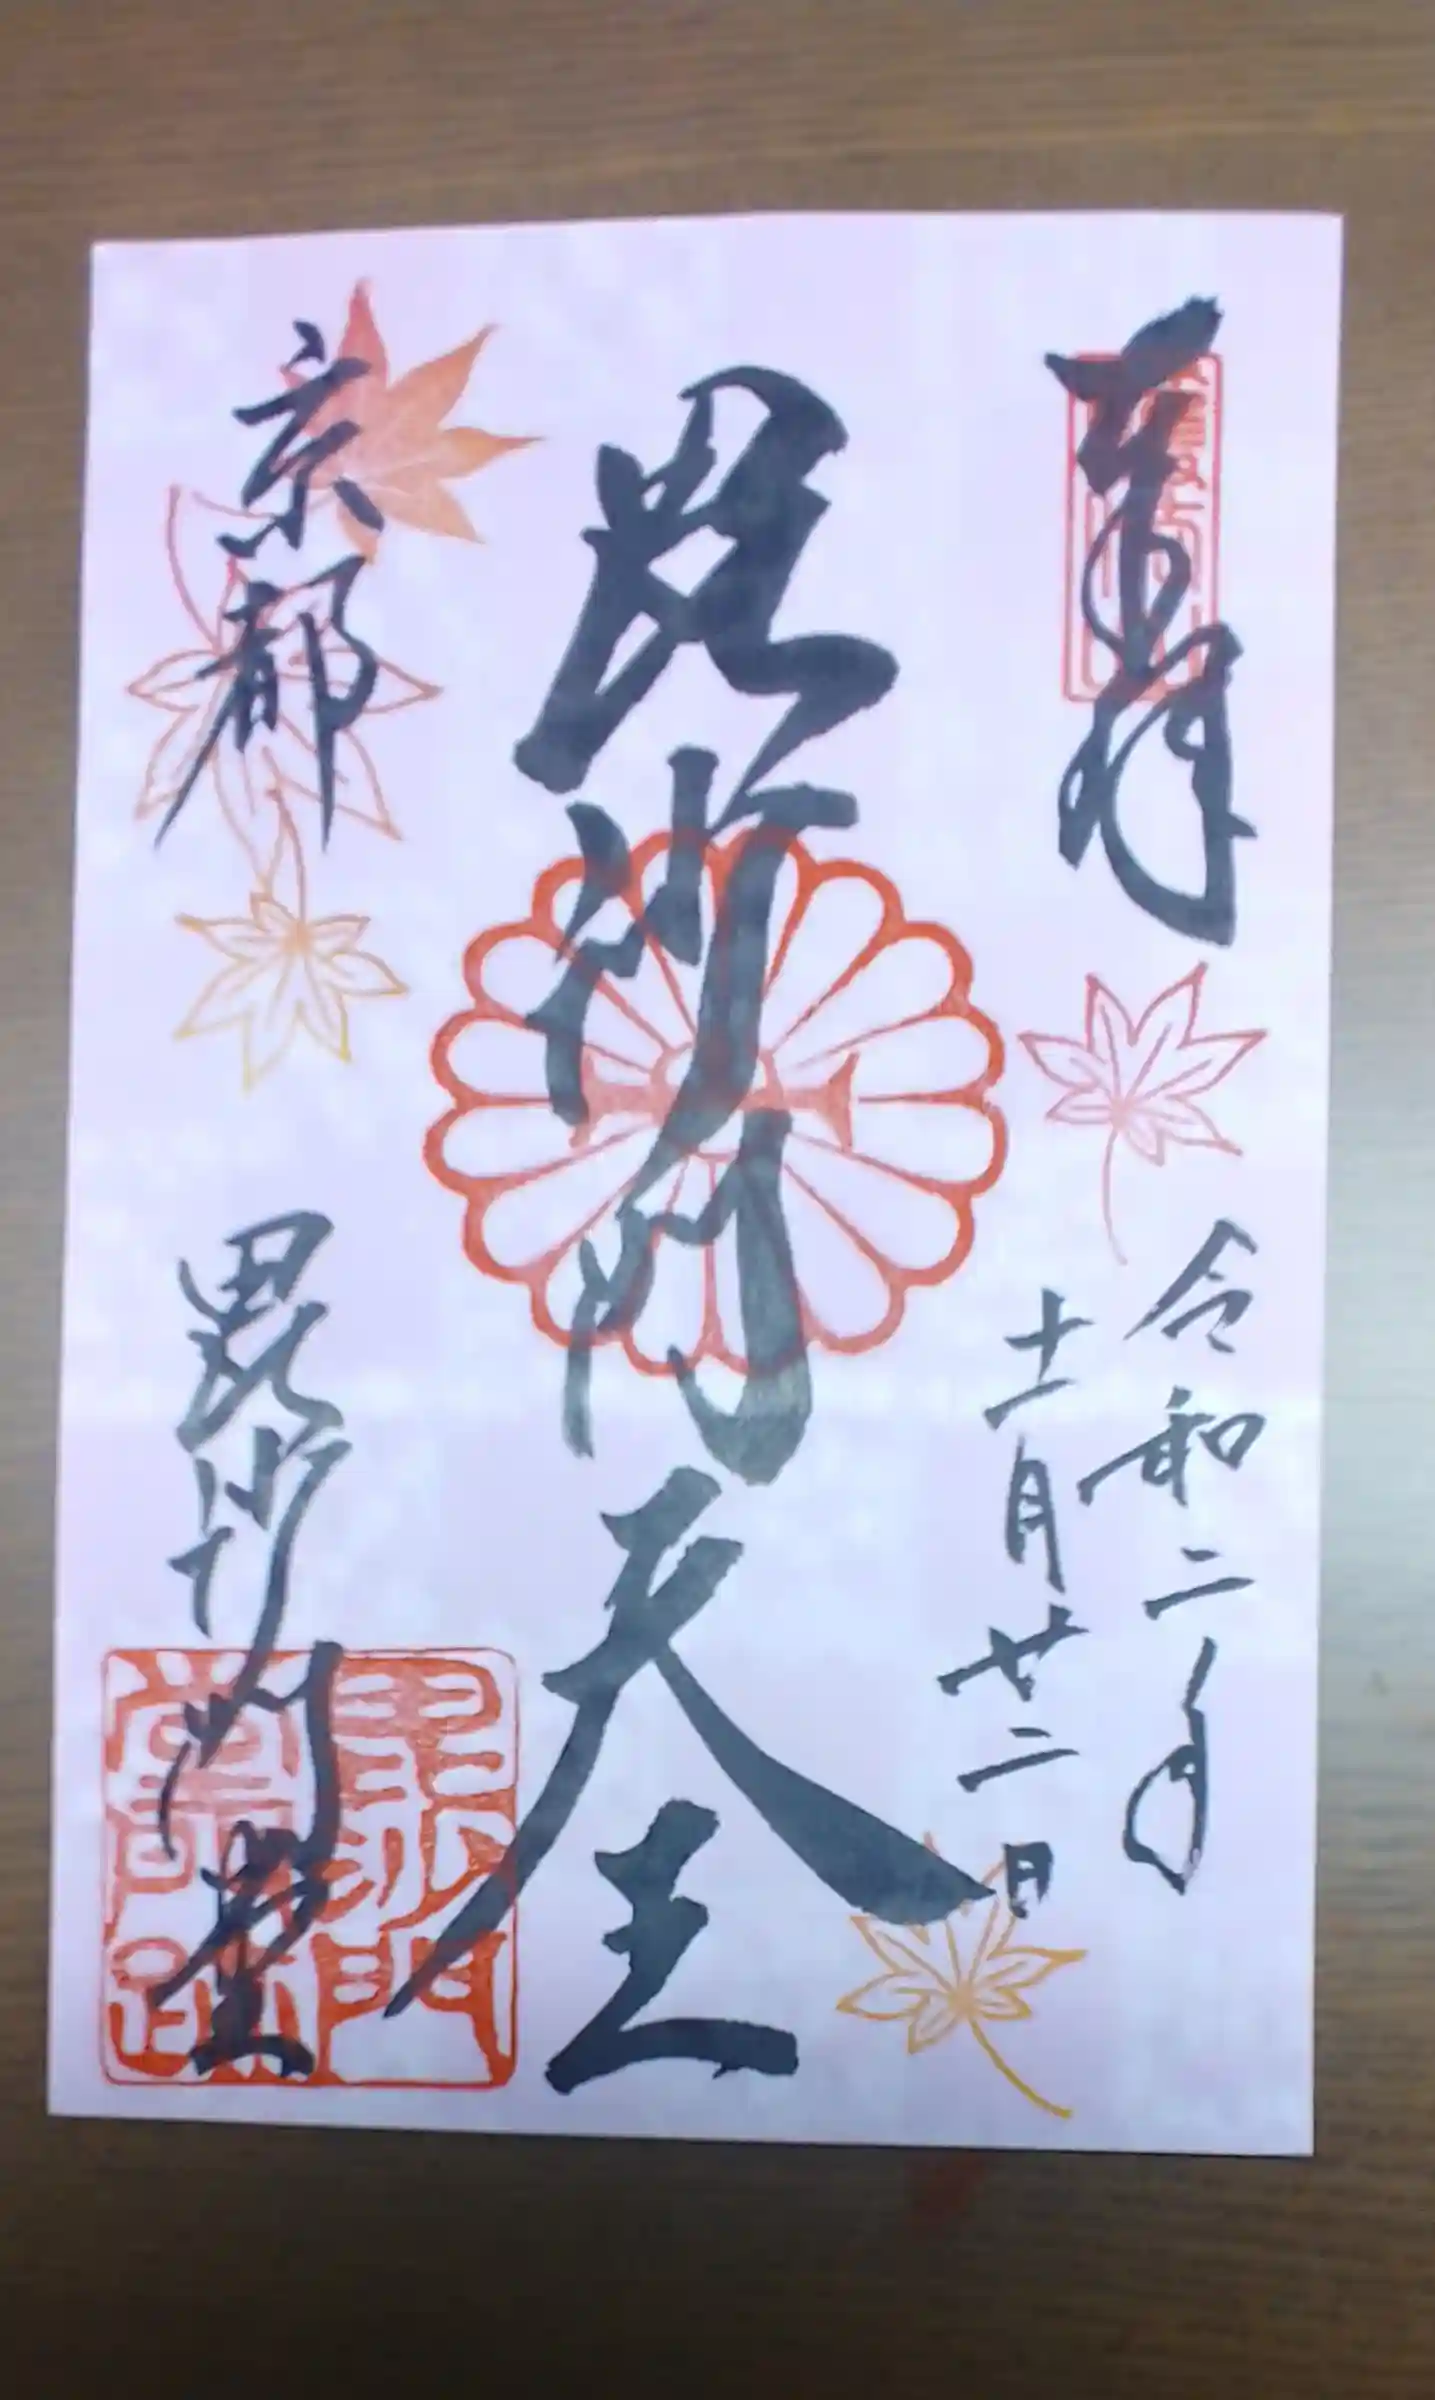 奉拝
令和二年
十一月廿二日
毘沙門天王
京都
毘沙門堂
毘沙門
堂門跡